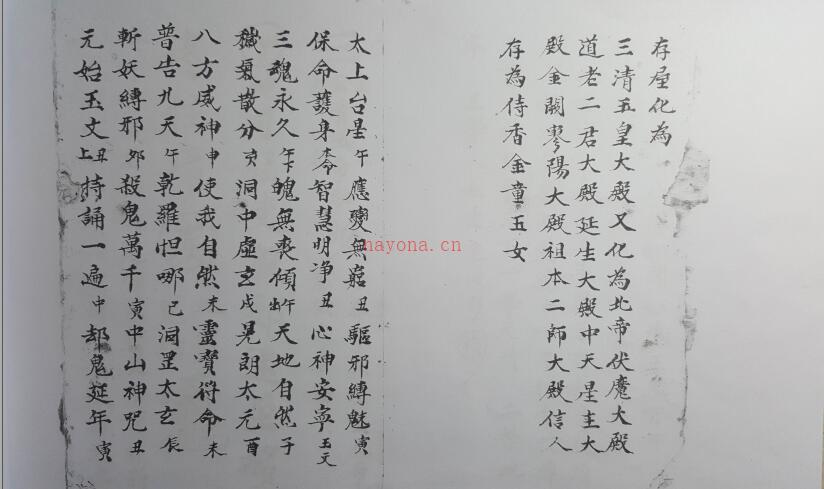 存屋化為
三清五皇大殿又化為北帝伏魔大殿
道老二君大殿延生大殿中天星主大
殿金闕寥陽大殿祖本二師大殿信人
存為侍香金童玉女
太上台星午應變無窮丑驅邪縛魅寅
保命護身本命智慧明净丑心神安寧玉文
三魂永久午下魄無喪傾午出天地自然子
穢氣散分亥洞中虛玄戌晃朗太元酉
八方威神申使我自然未靈寶符命未
普告九天午乾羅怛哪已洞罡太玄辰
斬妖縛邪卯殺鬼萬千寅中山神咒丑
元始玉文丑上持誦一遍中却鬼延年寅
nayona.cn